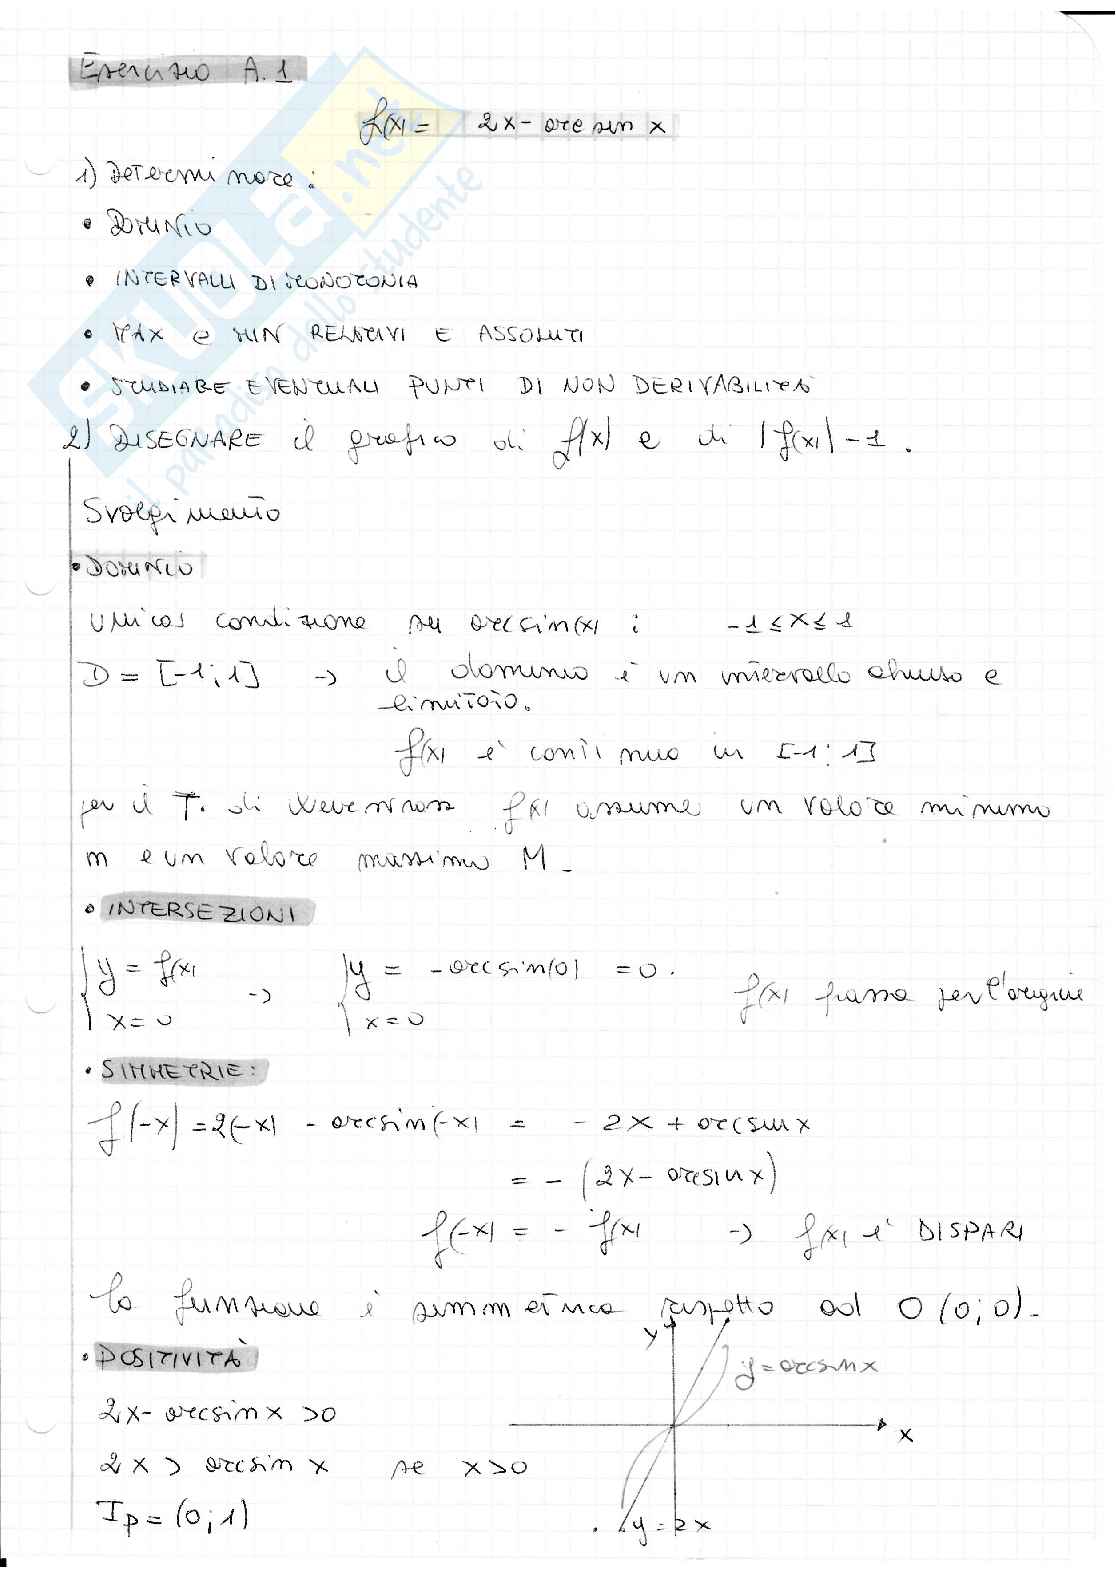 Esercizio A.1
f(x) = 2x - arcsin x
1) Determinare:
• DOMINIO
• INTERVALLI DI MONOTONIA
• MAX e MIN RELATIVI E ASSOLUTI
• STUDIARE EVENTUALI PUNTI DI NON DERIVABILITÀ
2) DISEGNARE il grafico di f(x) e di |f(x)| - 1.
Svolgimento
• DOMINIO
unica condizione su arcsin(x) : -1 ≤ x ≤ 1
D = [-1; 1] → il dominio è un intervallo chiuso e
limitato.
f(x) è continua in [-1; 1]
per il T. di Weierstrass f(x) assume un valore minimo
m e un valore massimo M.
• INTERSEZIONI
{ y = f(x) { y = -arcsin(0) = 0.
→ f(x) passa per l'origine
x = 0 x = 0
• SIMMETRIE:
f(-x) = 2(-x) - arcsin(-x) = - 2x + arcsin x
= - (2x - arcsin x)
f(-x) = - f(x) → f(x) è DISPARI
la funzione è simmetrica rispetto ad O (0; 0).
• POSITIVITÀ
y
y = arcsin x
2x - arcsin x > 0
x
2x > arcsin x se x > 0
Ip = (0; 1)
y = 2x
SKUOLA.net
il paradiso dello studente